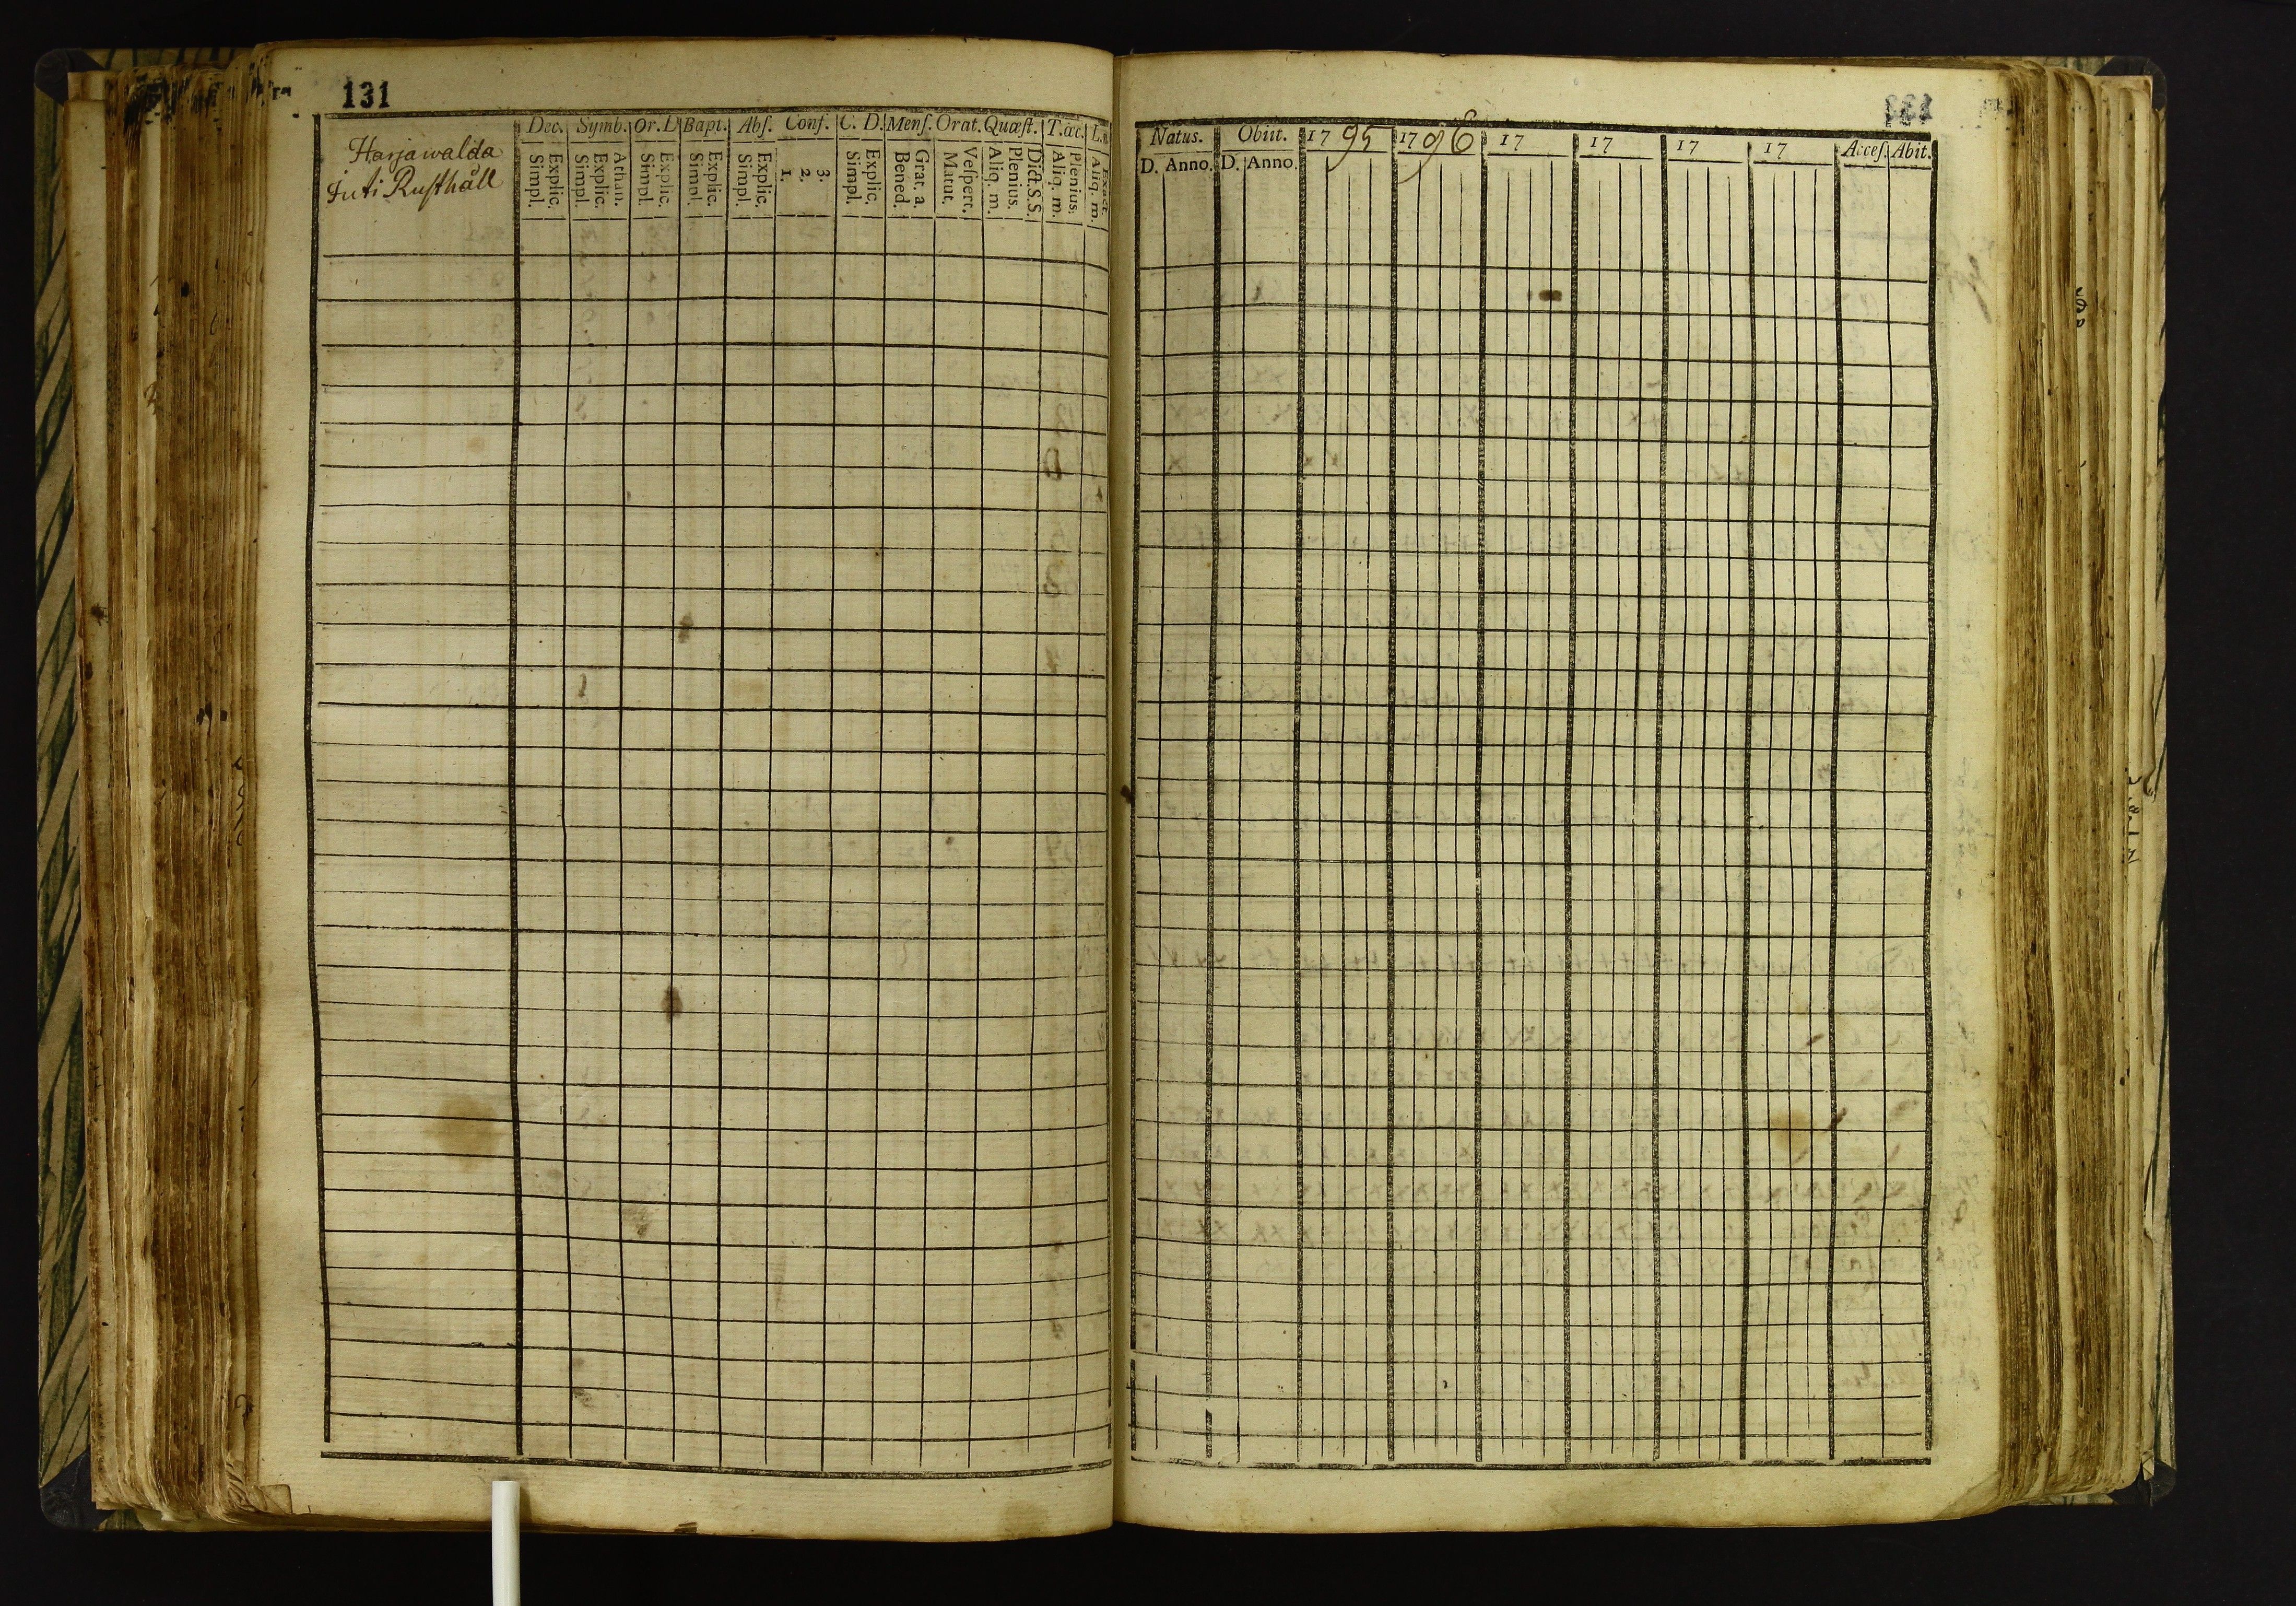 131
Harjawalda
Juti Rusthåll
Dec. Symb. Or. D Bapt. Abſ. Conf. C. D. Menſ. Orat. Quæſt. T. œc.
Simpl. Explic. Simpl. Explic. Athan. Simpl. Explic. Simpl. Explic. Simpl. Explic. 1. 2. 3. Simpl. Explic. Bened. Grat. a. Matut. Veſpert. Aliq. m. Plenius. Dict. S.S. Aliq. m. Plenius. Aliq. m. Exact.
Natus. Obiit. 1795 1796 17 17 17 17 Acceſ. Abit.
D. Anno. D. Anno.